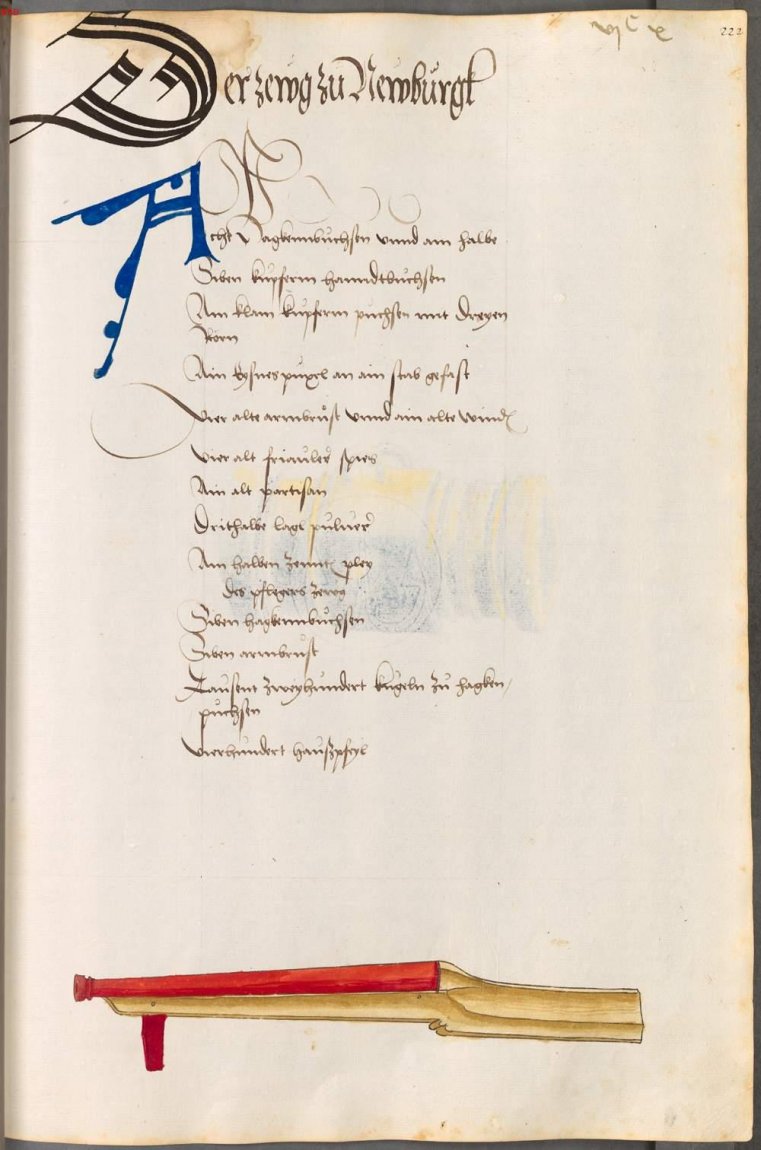 vjC x
222
Der zewg zu Newburgk
Acht Hagkennbuchsen vnnd ain halbe
Siben kupferin hanndtbuchsen
Ain klain kupferin puchsen mit dreyen
Rorn
Ain Eysnes puxel an ain stab gefast
Vier alte armbrust vnnd ain alte winnd
Vier alt friauler spies
Ain alt partisan
Drithalbe lagl puluer
Ain halben Zennt pley
des pflegers zewg
Siben hagkennbuchsen
Siben armbrust
Tausent zweyhundert kugeln zu hagken
puchsen
Vierhundert hauszpfeyl